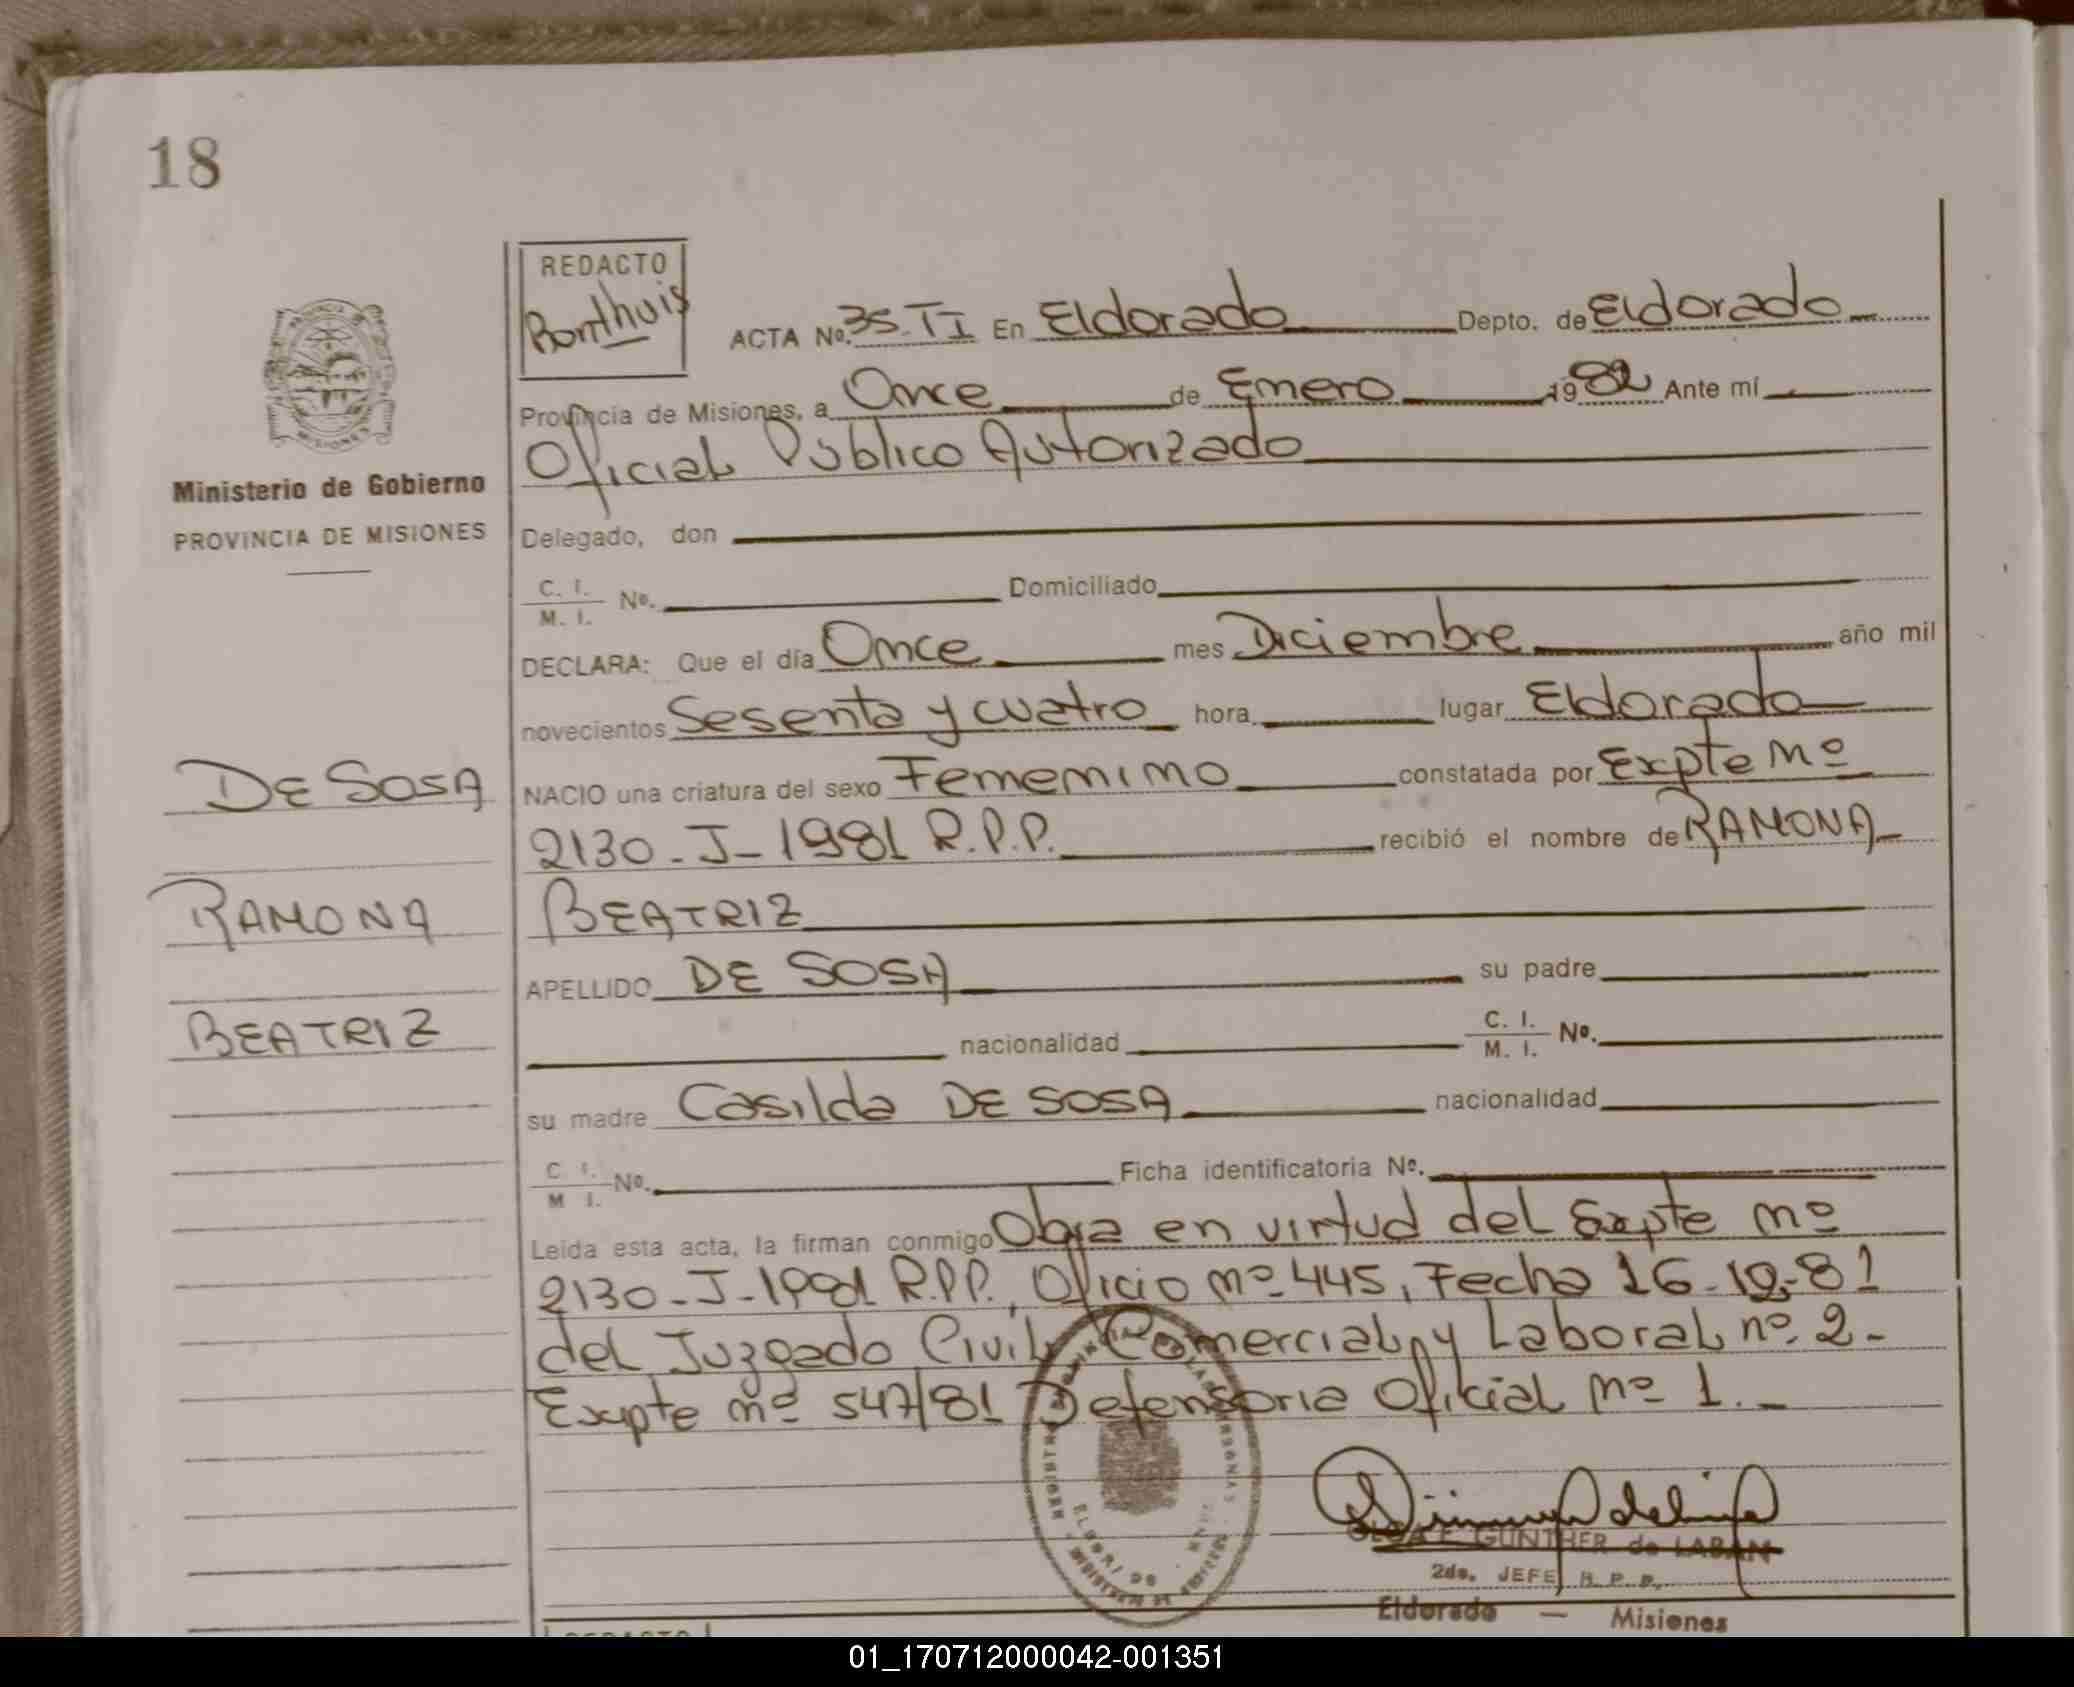 18
REDACTO
Bonthuis
ACTA No. 35. TI En Eldorado Depto. de Eldorado
Provincia de Misiones, a Once de Enero 1982 Ante mí
Oficial Público Autorizado
Ministerio de Gobierno
PROVINCIA DE MISIONES
Delegado, don
C. I.
M. I. No. Domiciliado
DECLARA: Que el día Once mes Diciembre año mil
novecientos Sesenta y cuatro hora lugar Eldorado
DE SOSA
NACIO una criatura del sexo Femenino constatada por Expte nº
2130-J-1981 R.P.P. recibió el nombre de RAMONA
RAMONA
BEATRIZ
APELLIDO DE SOSA su padre
BEATRIZ
nacionalidad C. I.
M. I. No.
su madre Casilda DE SOSA nacionalidad
C. I.
M. I. No. Ficha identificatoria No.
Leida esta acta, la firman conmigo Obra en virtud del Expte nº
2130-J-1981 R.P.P., Oficio nº 445, Fecha 16-12-81
del Juzgado Civil, Comercial y Laboral nº 2-
Expte nº 547/81 Defensoria Oficial nº 1.-
GUNTHER de LABAN
2do. JEFE R. P. P.
Eldorado — Misiones
REDACTO
01_170712000042-001351